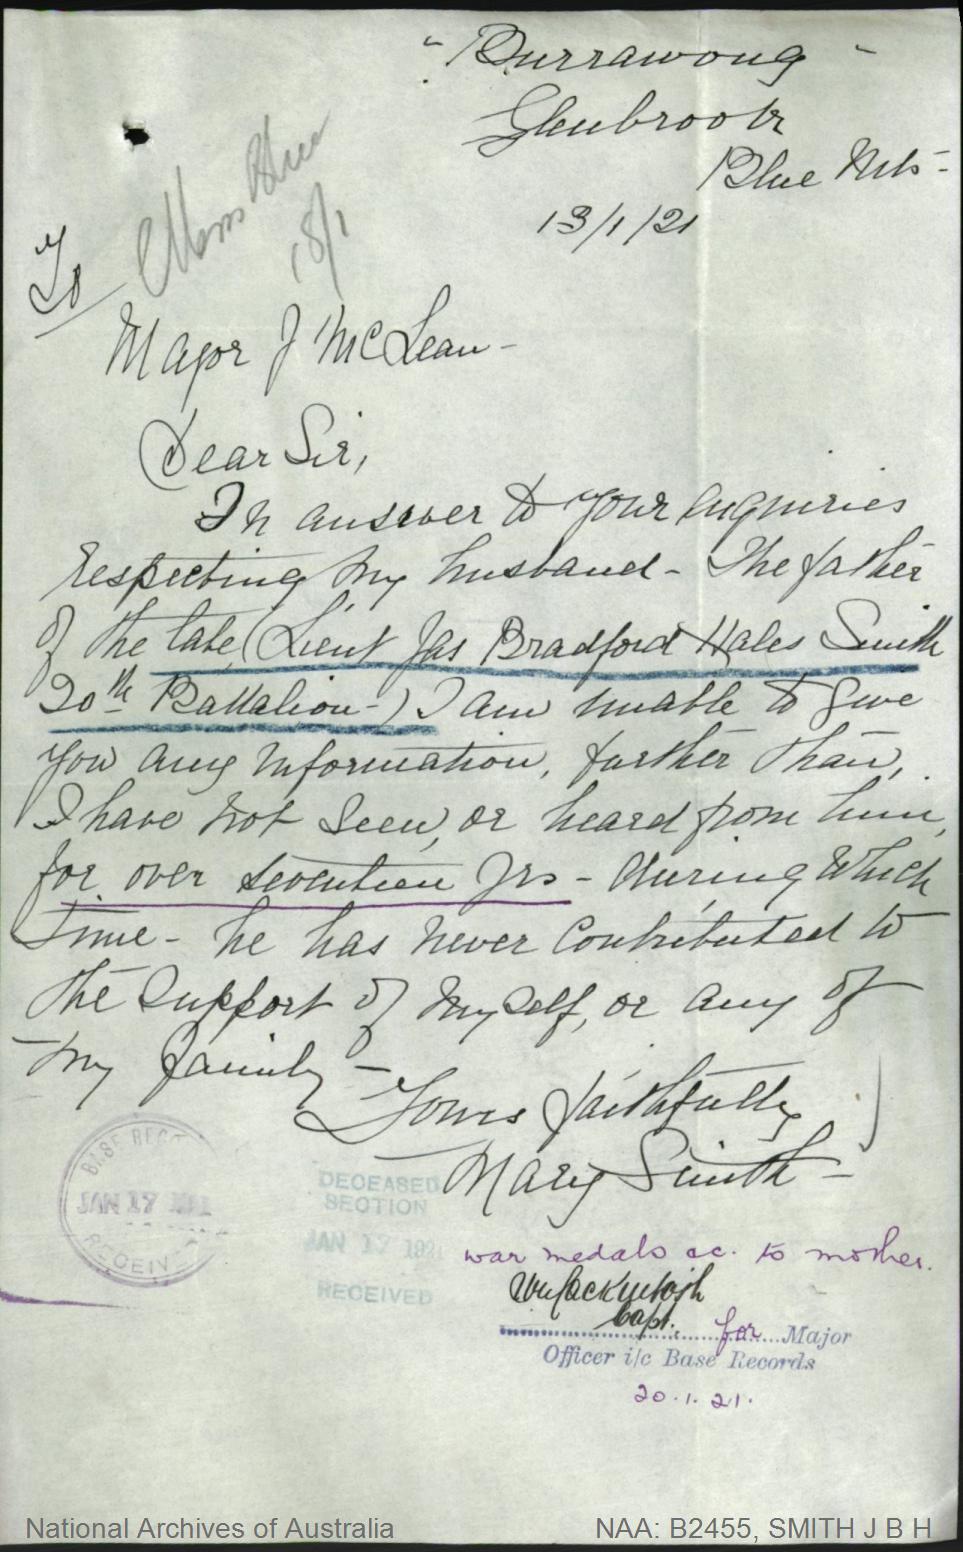 "Burrawong"
Glenbrook
Blue Mts-
13/1/21
18/1
To
Major J McLean-
Dear Sir,
In answer to your enquiries
respecting my husband- The father
of the late (Lieut Jas Bradford Hales Smith
20th Battalion-) I am unable to give
you any information, further than,
I have not seen, or heard from him,
for over seventeen yrs- during which
time- he has never contributed to
the support of myself, or any of
my family-
Yours faithfully
Mary Smith-
BASE RECO
JAN 17
RECEIVE
DECEASED
SECTION
JAN 17 1921
RECEIVED
war medals &c. to mother.
Capt. for Major
Officer i/c Base Records
20.1.21.
National Archives of Australia NAA: B2455, SMITH J B H